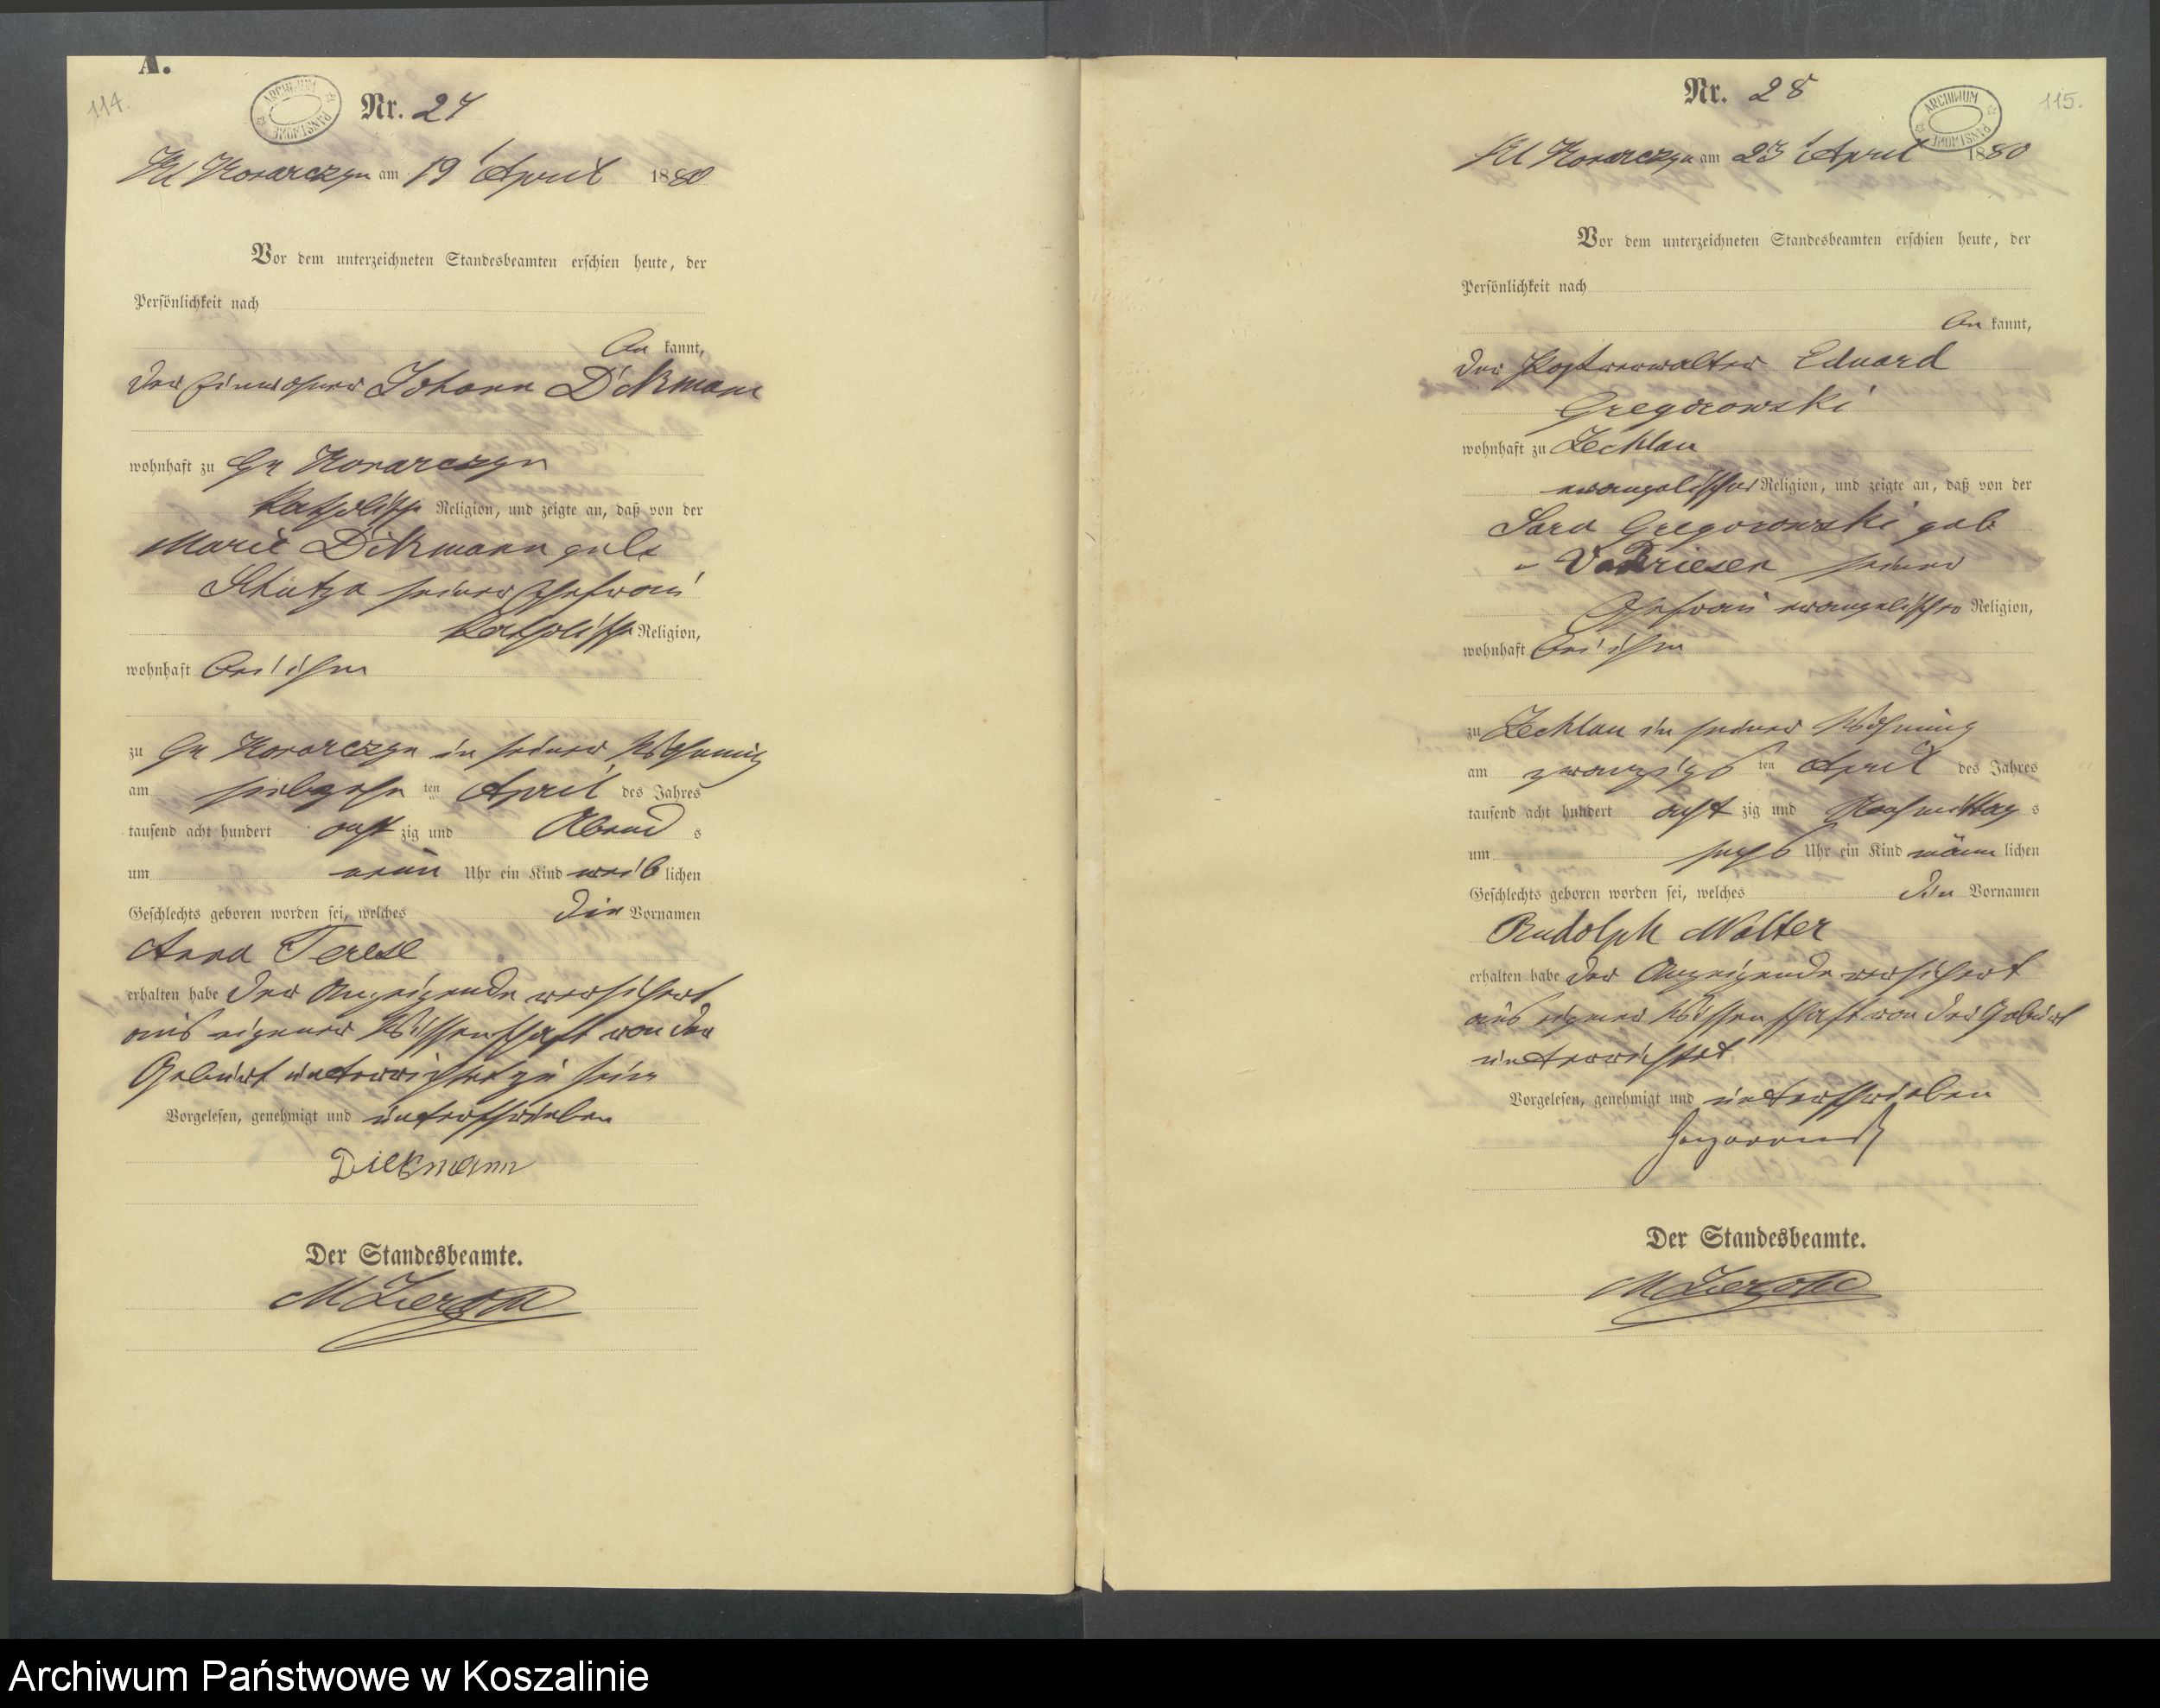 A.
114.
ARCHIWUM PAŃSTWOWE
Nr. 27
Kl Konarczyn am 19 April 1880
Vor dem unterzeichneten Standesbeamten erschien heute, der
Persönlichkeit nach
be kannt,
der Einwohner Johann Dikmann
wohnhaft zu Gr Konarczyn
katholische Religion, und zeigte an, daß von der
Marie Dikmann geb
seiner Ehefrau
katholische Religion,
wohnhaft bei ihm
zu Gr Konarczyn in seiner Wohnung
am siebzehn ten April des Jahres
tausend acht hundert acht zig und Abend s
um neun Uhr ein Kind weib lichen
Geschlechts geboren worden sei, welches die Vornamen
Anna Terese
erhalten habe der Anzeigende versichert
aus eigener Wissenschaft von der
Geburt unterrichtet zu sein
Vorgelesen, genehmigt und unterschrieben
Diekmann
Der Standesbeamte.
115.
ARCHIWUM PAŃSTWOWE
Nr. 28
Kl Konarczyn am 23 April 1880
Vor dem unterzeichneten Standesbeamten erschien heute, der
Persönlichkeit nach
be kannt,
der Postverwalter Eduard
Gregorowski
wohnhaft zu Zechlau
evangelischer Religion, und zeigte an, daß von der
Sara Gregorowski geb
Riesen seiner
Ehefrau evangelischer Religion,
wohnhaft bei ihm
zu Zechlau in seiner Wohnung
am zwanzigs ten April des Jahres
tausend acht hundert acht zig und Nachmittag s
um sechs Uhr ein Kind männ lichen
Geschlechts geboren worden sei, welches die Vornamen
Rudolph Walter
erhalten habe der Anzeigende versichert
aus eigener Wissenschaft von der Geburt
unterrichtet
Vorgelesen, genehmigt und unterschrieben
Der Standesbeamte.
Archiwum Państwowe w Koszalinie